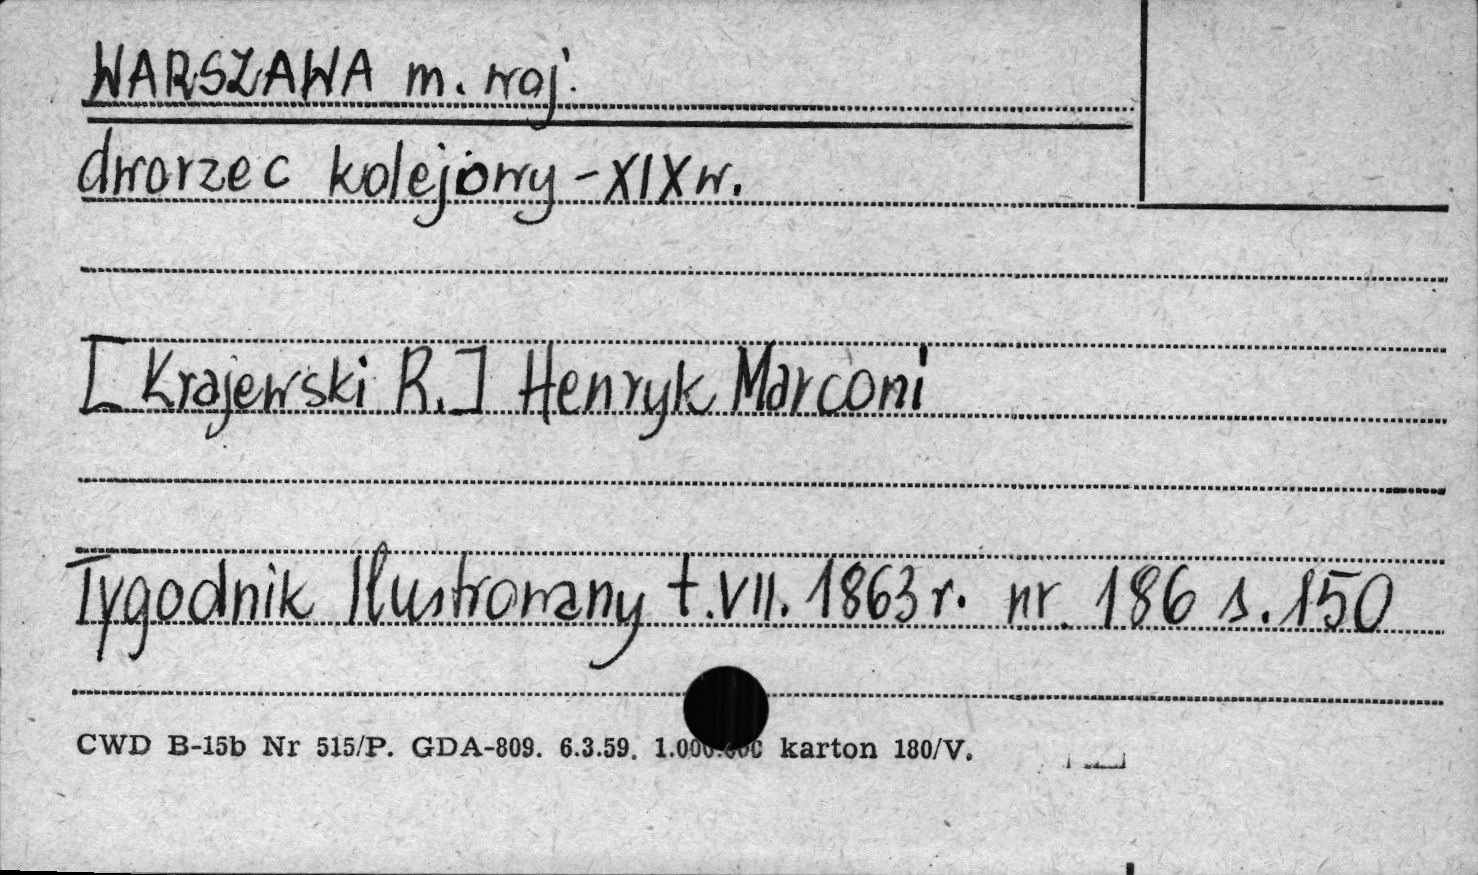 WARSZAWA m. woj.
dworzec kolejowy - XIX w.
[Krajewski R.] Henryk Marconi
Tygodnik Ilustrowany t. VII. 1863 r. nr. 186 s. 150
CWD B-15b Nr 515/P. GDA-809. 6.3.59. 1.000.000 karton 180/V.